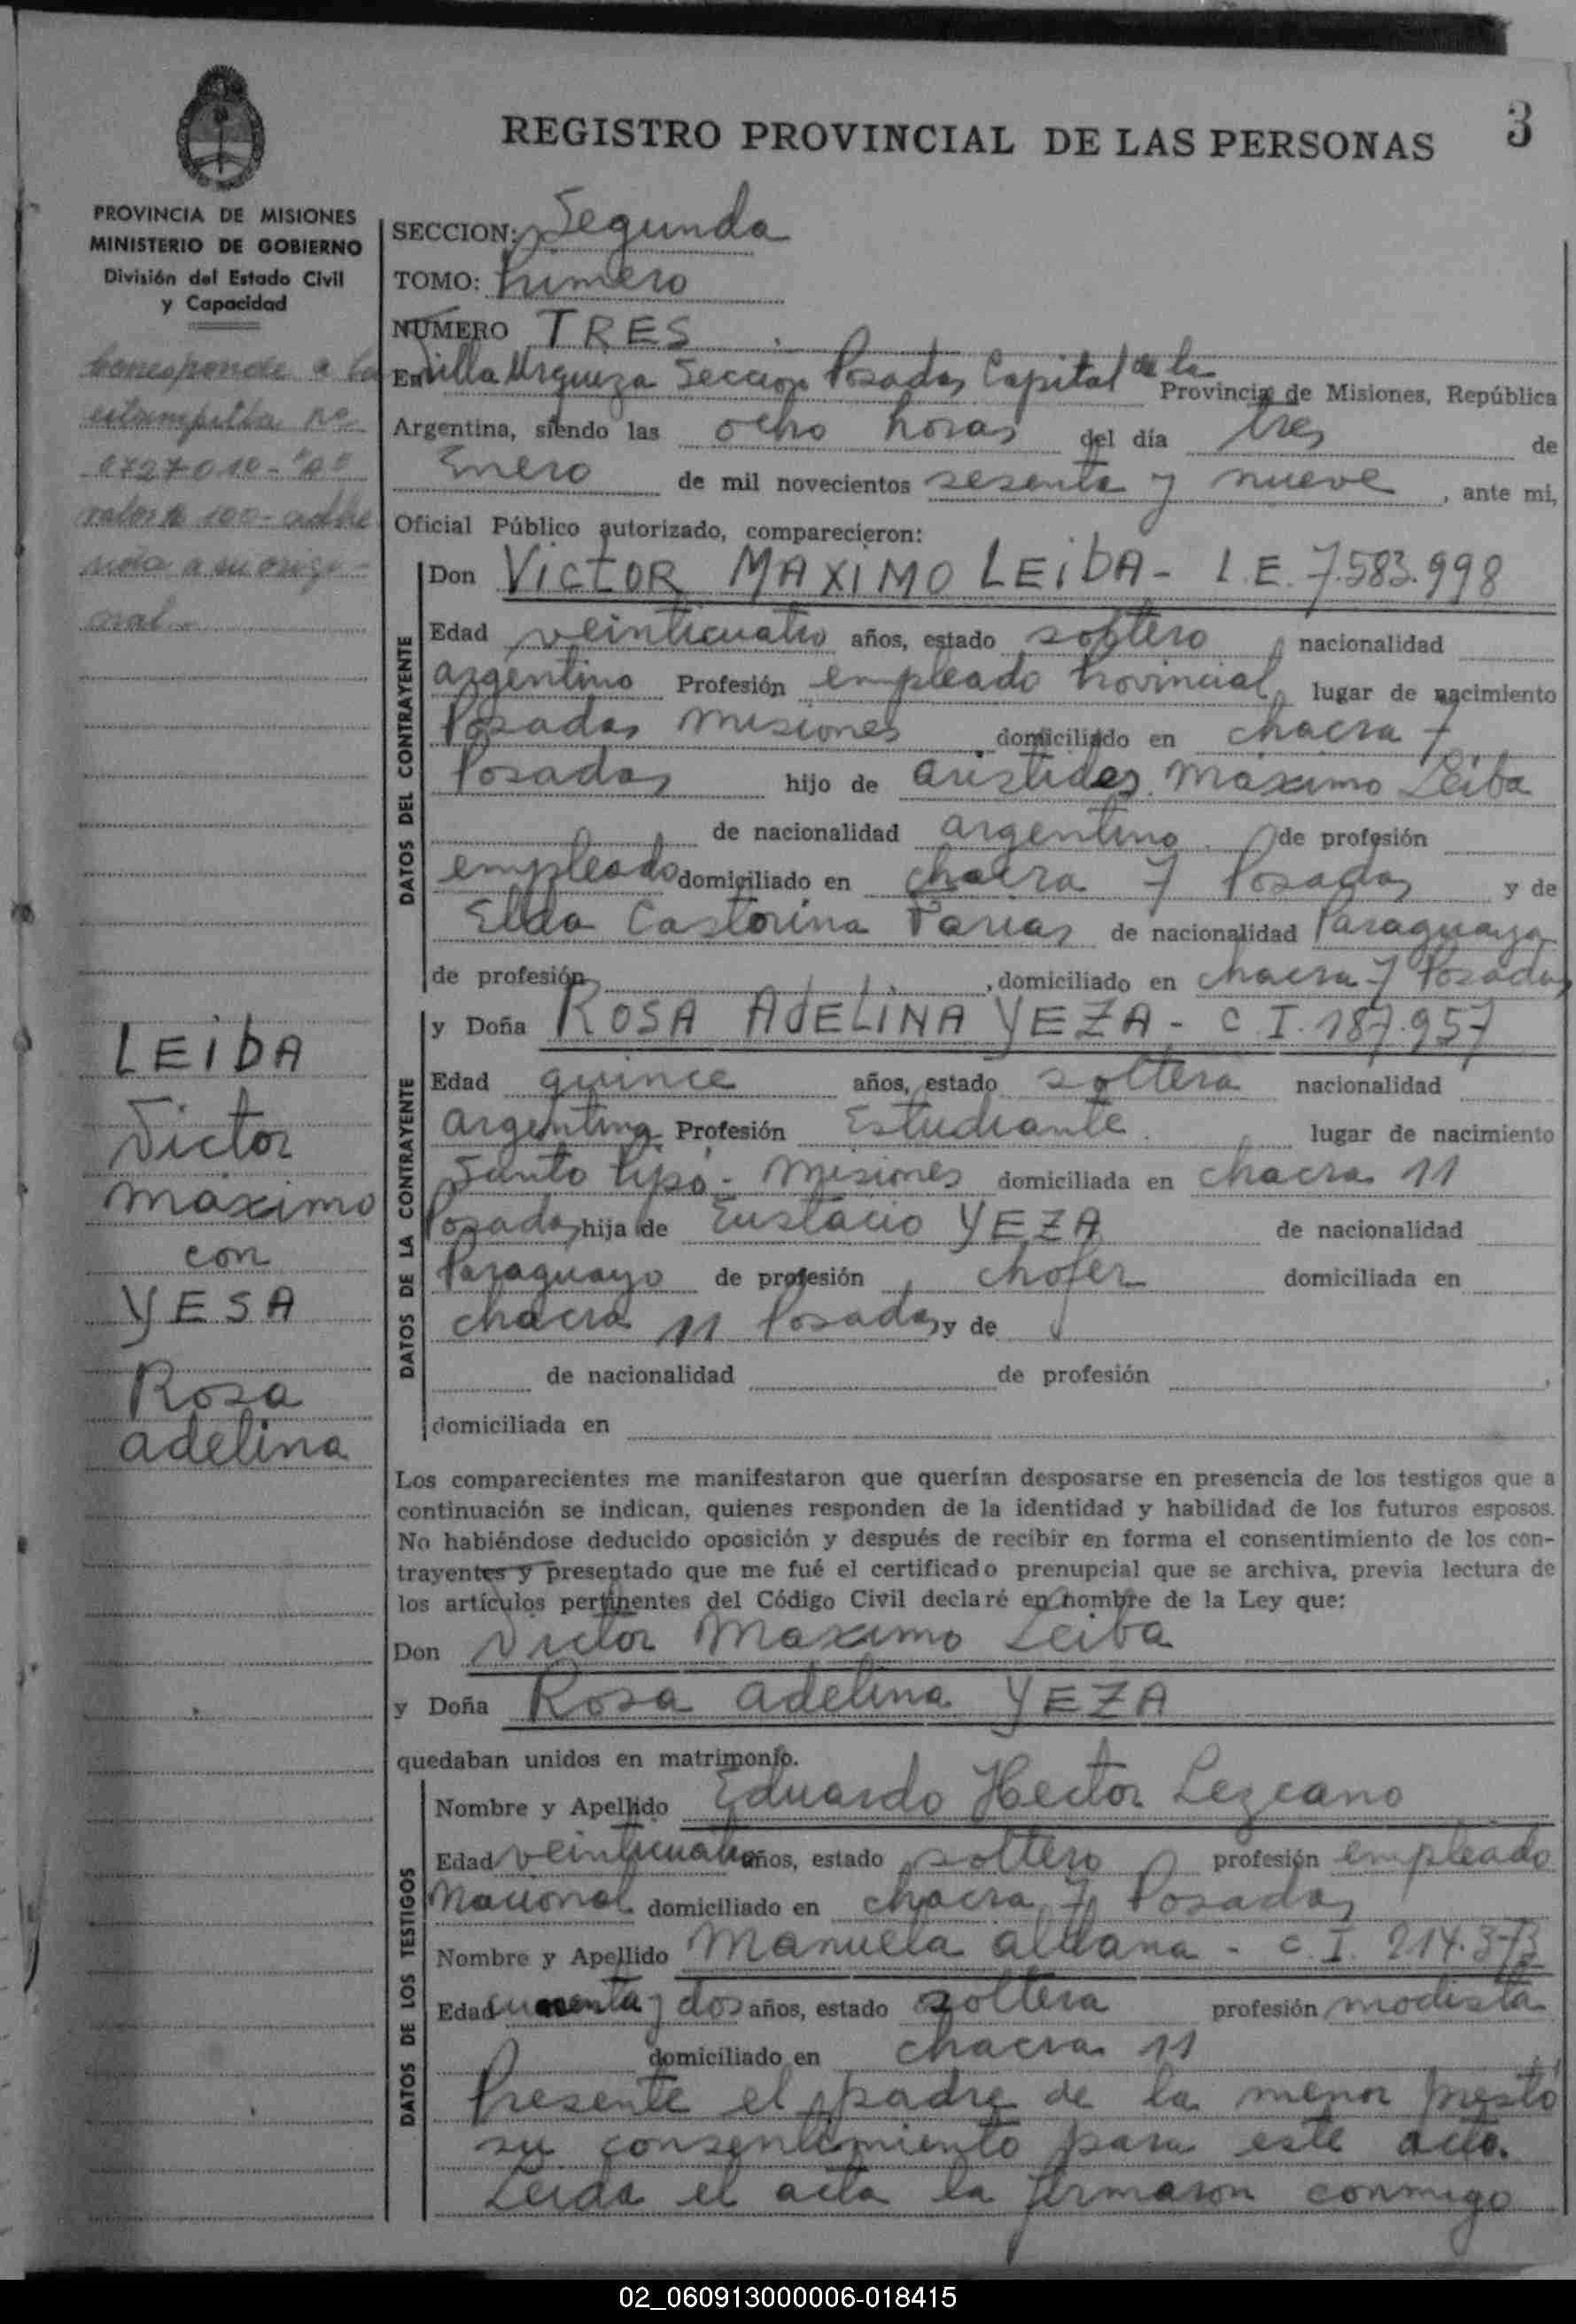 REGISTRO PROVINCIAL DE LAS PERSONAS 3
PROVINCIA DE MISIONES
MINISTERIO DE GOBIERNO
División del Estado Civil
y Capacidad
Corresponde a la
estampilla Nº
0727010-"A"
valor $ 100- adhe
rida a su origi-
nal.-
LEIbA
Victor
Maximo
con
YESA
Rosa
adelina
SECCION: Segunda
TOMO: Primero
NUMERO TRES
En Villa Urquiza Seccion Posadas Capital de la Provincia de Misiones, República
Argentina, siendo las ocho horas del día tres de
Enero de mil novecientos sesenta y nueve, ante mi,
Oficial Público autorizado, comparecieron:
DATOS DEL CONTRAYENTE
Don VICTOR MAXIMO LEIbA - L.E. 7.583.998
Edad veinticuatro años, estado soltero nacionalidad
argentino Profesión empleado Provincial lugar de nacimiento
Posadas Misiones domiciliado en chacra 7
Posadas hijo de aristides Maximo Leiba
de nacionalidad argentino de profesión
empleado domiciliado en chacra 7 Posadas y de
Elda Castorina Farias de nacionalidad Paraguaya
de profesión , domiciliado en chacra 7 Posadas
DATOS DE LA CONTRAYENTE
y Doña ROSA ADELINA YEZA - C.I. 187.957
Edad quince años, estado soltera nacionalidad
argentina Profesión Estudiante lugar de nacimiento
Santo Pipó - Misiones domiciliada en chacra 11
Posadas hija de Eustacio YEZA de nacionalidad
Paraguayo de profesión chofer domiciliada en
chacra 11 Posadas y de
de nacionalidad de profesión ,
domiciliada en
Los comparecientes me manifestaron que querían desposarse en presencia de los testigos que a
continuación se indican, quienes responden de la identidad y habilidad de los futuros esposos.
No habiéndose deducido oposición y después de recibir en forma el consentimiento de los con-
trayentes y presentado que me fué el certificado prenupcial que se archiva, previa lectura de
los artículos pertinentes del Código Civil declaré en nombre de la Ley que:
Don Victor Maximo Leiba
y Doña Rosa adelina YEZA
quedaban unidos en matrimonio.
DATOS DE LOS TESTIGOS
Nombre y Apellido Eduardo Hector Lezcano
Edad veinticuatro años, estado soltero profesión empleado
Nacional domiciliado en chacra 7 Posadas
Nombre y Apellido Manuela aldana - C.I. 214.373
Edad cuarenta y dos años, estado soltera profesión modista
domiciliado en chacra 11
Presente el padre de la menor prestó
su consentimiento para este acto.
Leida el acta la firmaron conmigo
02_060913000006-018415